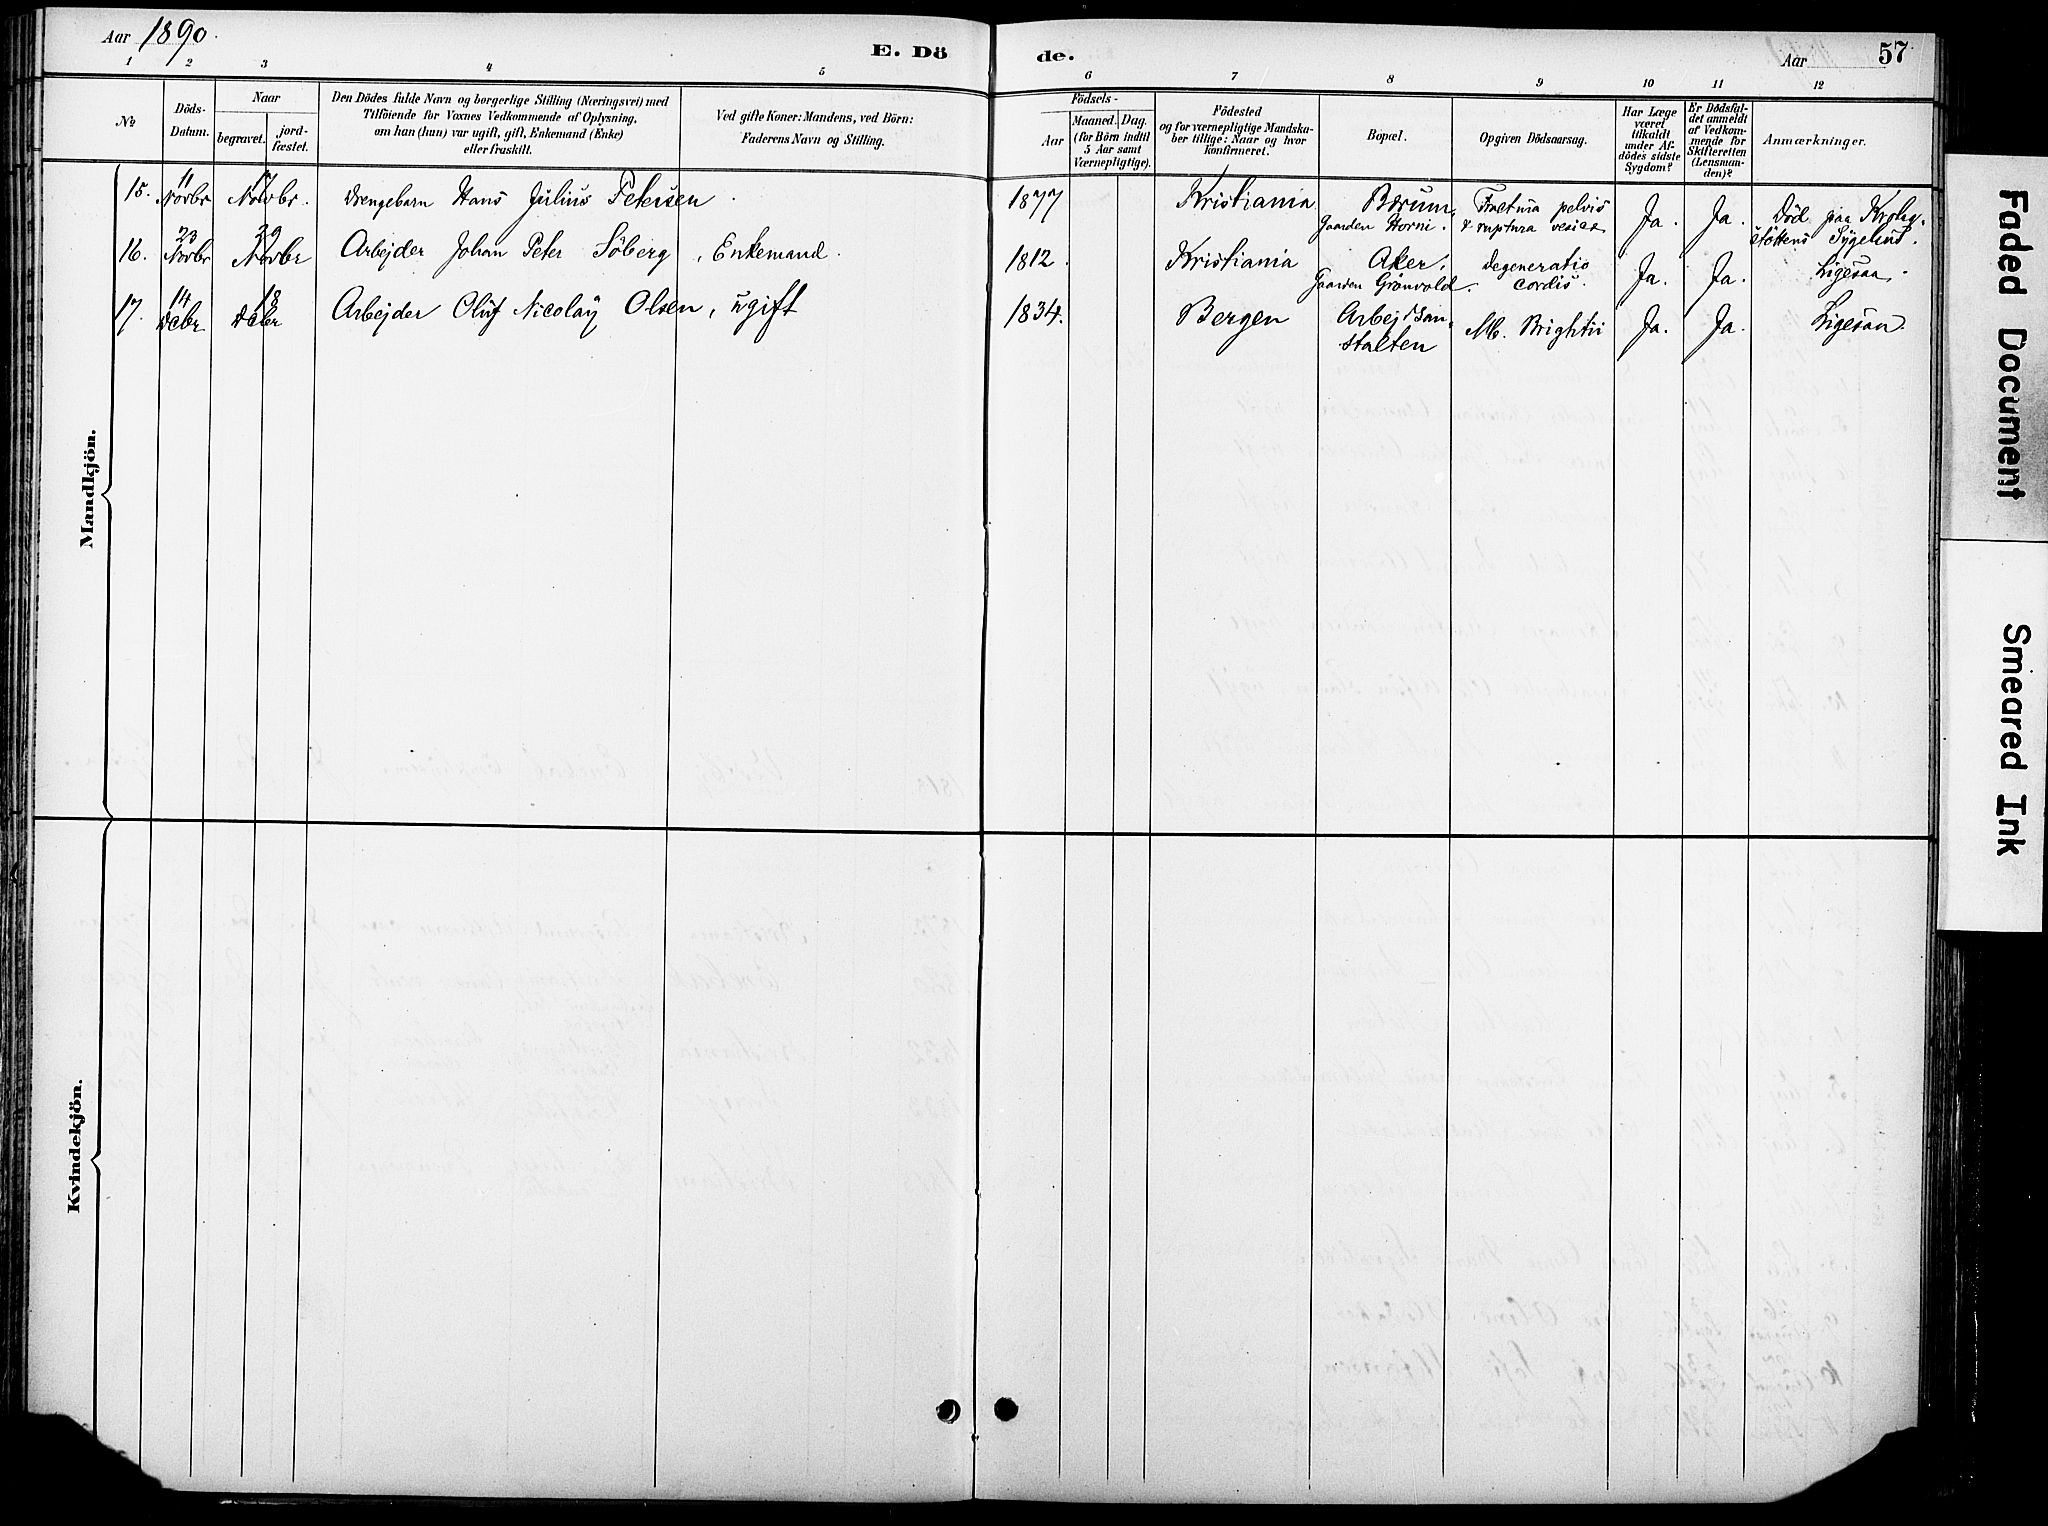 Aar 1890.
E. Dö
de.
Aar
57
1 2 3 4 5 6 7 8 9 10 11 12
№
Döds-
Datum.
Naar
begravet.
jord-
fæstet.
Den Dödes fulde Navn og borgerlige Stilling (Næringsvei) med
Tilföiende for Voxnes Vedkommende af Oplysning,
om han (hun) var ugift, gift, Enkemand (Enke)
eller fraskilt.
Ved gifte Koner: Mandens, ved Börn:
Faderens Navn og Stilling.
Födsels-
Aar
Maaned.
Dag.
(for Börn indtil
5 Aar samt
Værnepligtige).
Födested
og for værnepligtige Mandska-
ber tillige: Naar og hvor
konfirmeret.
Bopæl.
Opgiven Dödsaarsag.
Har Læge
været
tilkaldt
under Af-
dödes sidste
Sygdom?
Er Dödsfal-
det anmeldt
af Vedkom-
mende for
Skifteretten
(Lensman-
den)?
Anmærkninger.
Mandkjön.
15. 11 Novbr 17 Novbr. Drengebarn Hans Julius Petersen. 1877 Kristiania Bærum, Gaarden Horni. Fractura pelvis & ruptura vesica Ja. Ja. Död paa Krohg-
stöttens Sygehus.
16. 23 Novbr 29 Novbr Arbejder Johan Peter Söberg, Enkemand. 1812. Kristiania Aker, Gaarden Grönvold. Degeneratio cordis. Ja. Ja. Ligesaa.
17. 14 Dcbr. 18 Dcbr Arbejder Oluf Nicolay Olsen, ugift 1834. Bergen Arbejdsan-
stalten M. Brightii Ja. Ja. Ligesaa.
Kvindekjön.
Faded Document
Smeared Ink